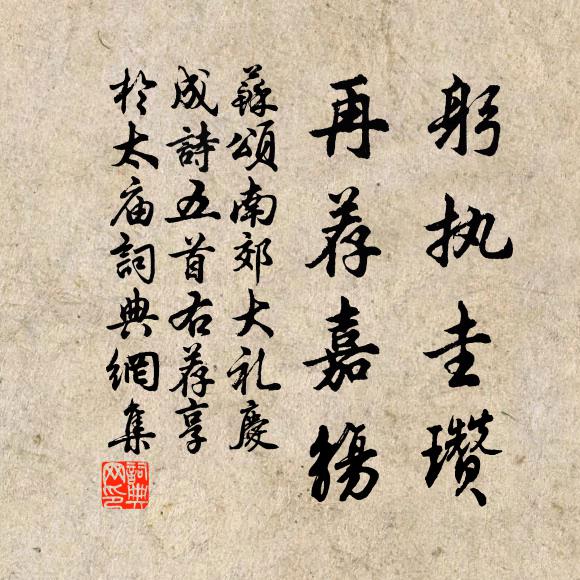 躬执圭瓒
再荐嘉觴
蘇頌南郊大礼慶
成詩五首右荐享
於太庙詞典網集
詞典
网印